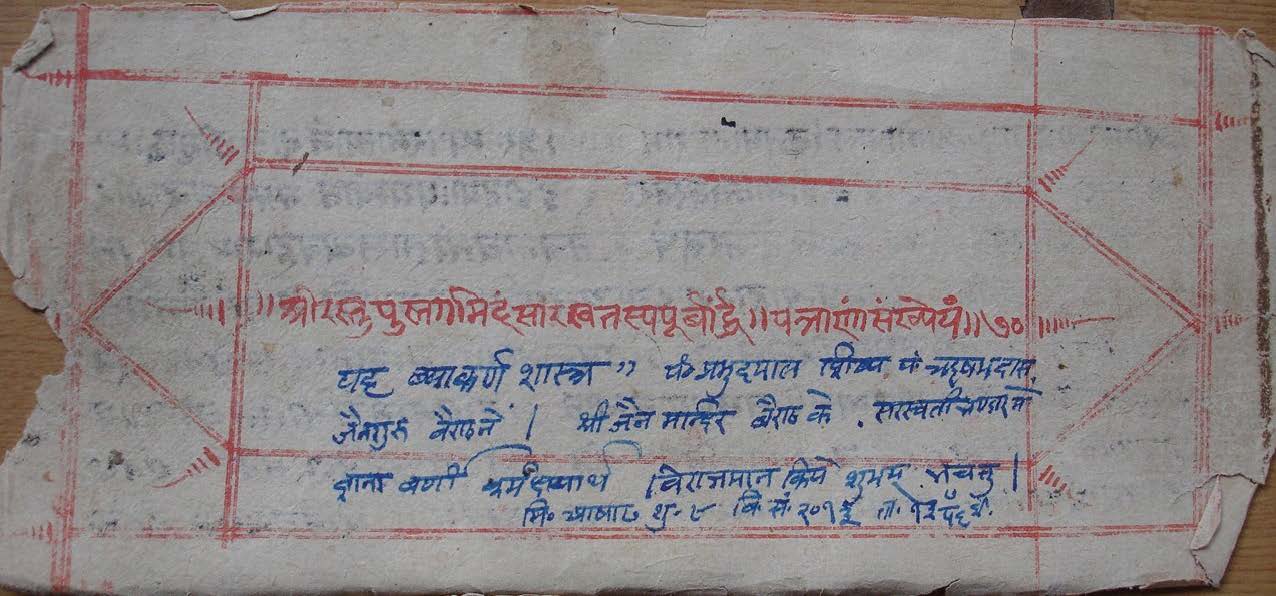 ॥ श्रीरस्तु पुस्तगमिदं सारस्वतस्य पूर्वार्द्ध ॥ पत्राणां संख्येयं ॥ ७०
यह ब्याकर्ण शास्त्र " पं० प्रभुदयाल शिष्य पं०
जैनगुरु बैराठ नें । श्री जैन मन्दिर बैराठ के . सरस्वती भण्डार में
ज्ञाना वर्णी कर्म क्षयार्थ विराजमान किये शुभम् भवतु ।
मि० आषाढ शु० ८ वि० सं०